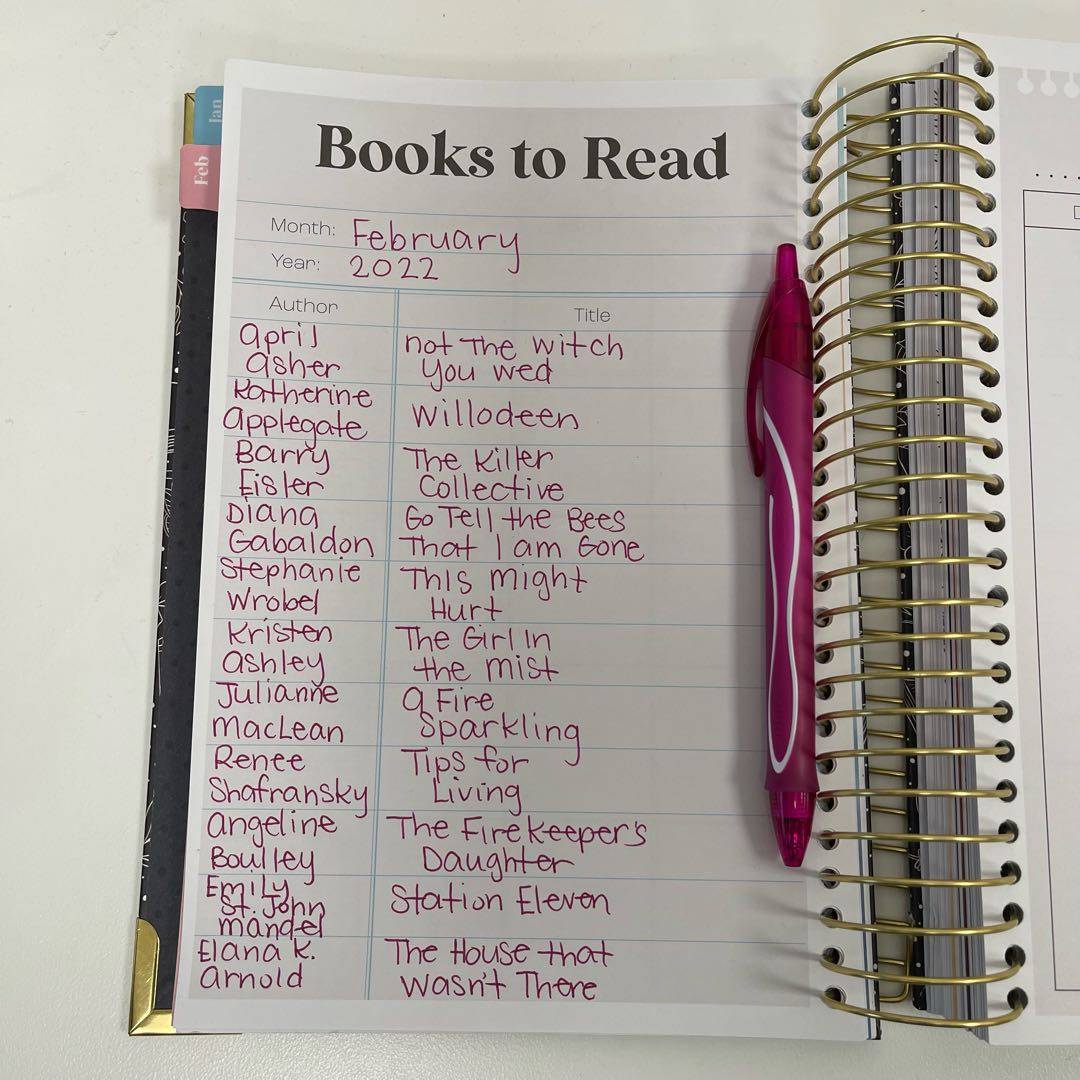 Jan
Feb
Books to Read
Month: February
Year: 2022
Author Title
April not The witch
Asher You wed
Katherine
Applegate Willodeen
Barry The Killer
Eisler Collective
Diana Go Tell the Bees
Gabaldon That I am Gone
Stephanie This might
Wrobel Hurt
Kristen The Girl In
Ashley the mist
Julianne A Fire
MacLean Sparkling
Renee Tips for
Shafransky Living
Angeline The Firekeeper's
Boulley Daughter
Emily
St. John Station Eleven
mandel
Elana K. The House that
Arnold wasn't There